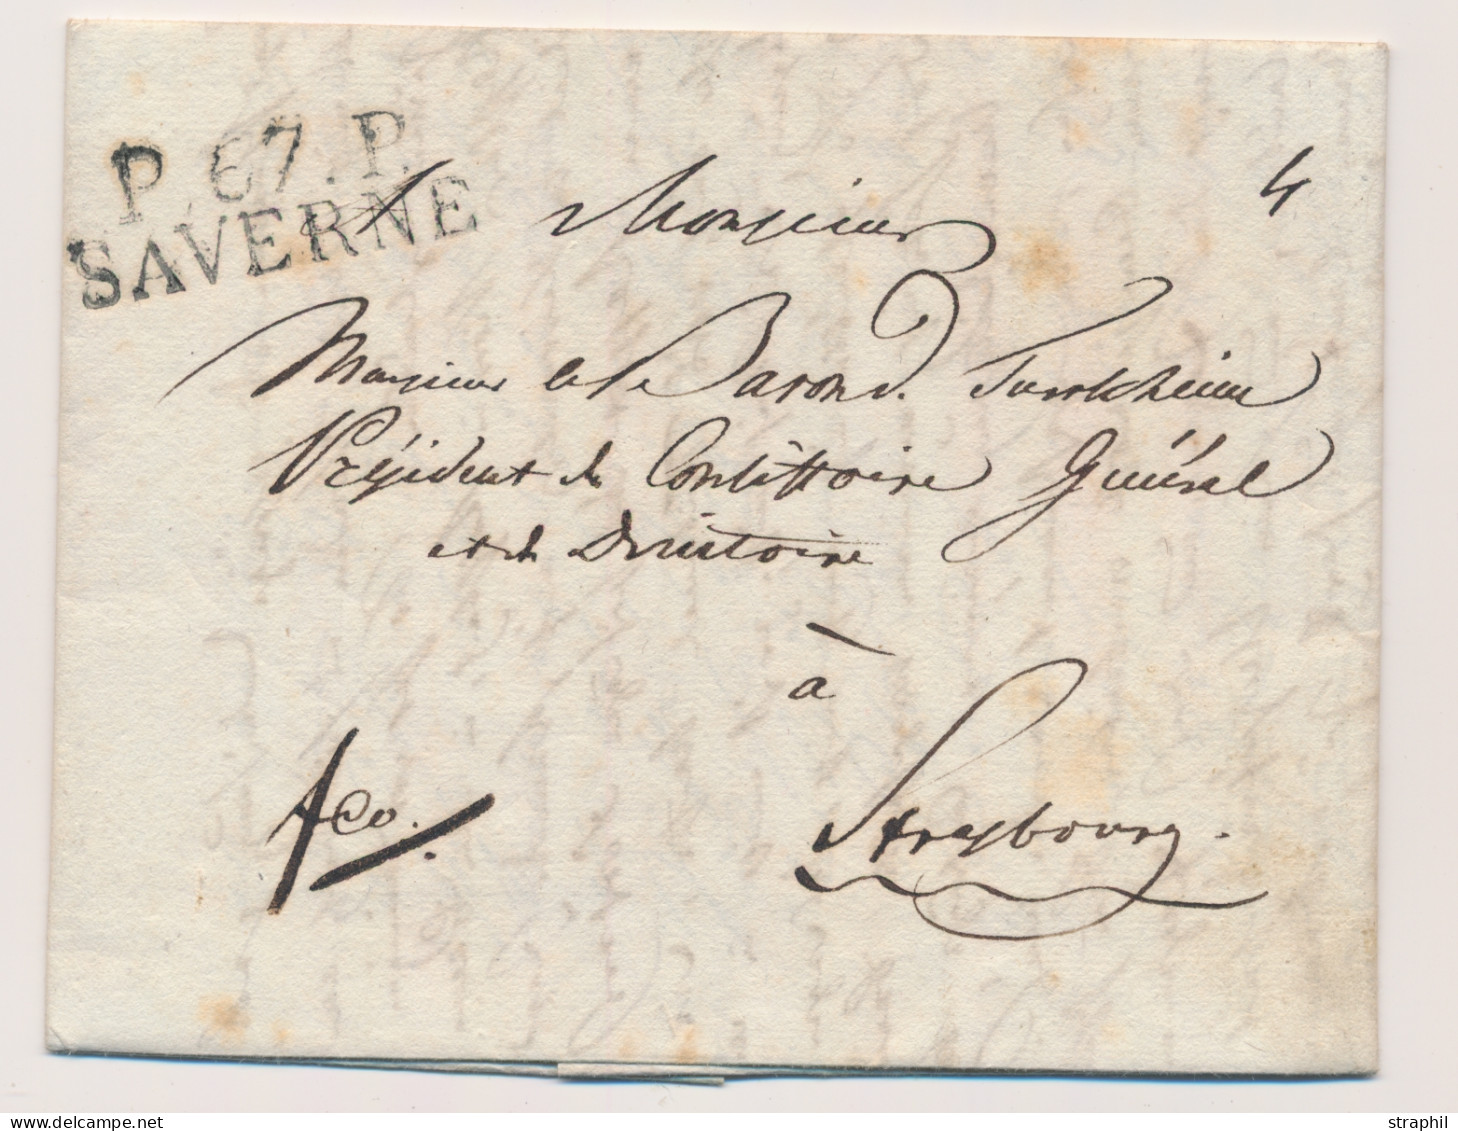 P. 67. P.
SAVERNE
4
Monsieur
Monsieur le Baron d. Turckheim
Président du Consistoire Général
et du Directoire
à
Strasbourg.
fco.
straphil